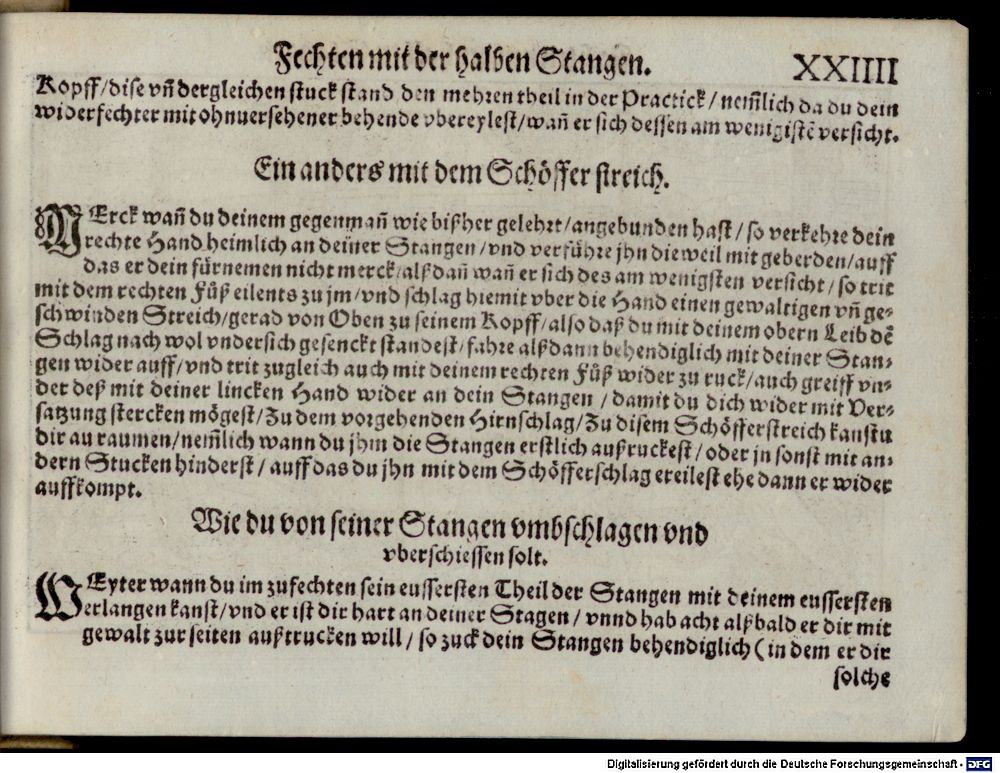 Fechten mit der halben Stangen. XXIIII
Kopff/dise vñ dergleichen stuck stand den mehren theil in der Practick/nem̃lich da du dein
widerfechter mit ohnuersehener behende vbereylest/wañ er sich dessen am wenigistẽ versicht.
Ein anders mit dem Schöffer streich.
MErck wañ du deinem gegenmañ wie bißher gelehrt/angebunden hast/so verkehre dein
rechte Hand heimlich an deiner Stangen/vnd verführe jhn die weil mit geberden/auff
das er dein fürnemen nicht merck/alß dañ wañ er sich des am wenigsten versicht/so trit
mit dem rechten Fůß eilents zu jm/vnd schlag hiemit vber die Hand einen gewaltigen vñ ge-
schwinden Streich/gerad von Oben zu seinem Kopff/also daß du mit deinem obern Leib dẽ
Schlag nach wol vndersich gesenckt standest/fahre alß dann behendiglich mit deiner Stan-
gen wider auff/vnd trit zugleich auch mit deinem rechten Fůß wider zu ruck/auch greiff vn-
der deß mit deiner lincken Hand wider an dein Stangen/damit du dich wider mit Ver-
satzung stercken mögest/Zu dem vorgehenden Hirnschlag/Zu disem Schöfferstreich kanstu
dir au raumen/nem̃lich wann du jhm die Stangen erstlich außruckest/oder jn sonst mit an-
dern Stucken hinderst/auff das du jhn mit dem Schöfferschlag ereilest ehe dann er wider
auffkompt.
Wie du von seiner Stangen vmbschlagen vnd
vberschiessen solt.
WEyter wann du im zufechten sein eussersten Theil der Stangen mit deinem eussersten
erlangen kanst/vnd er ist dir hart an deiner Stagen/vnnd hab acht alßbald er dir mit
gewalt zur seiten außtrucken will/so zuck dein Stangen behendiglich (in dem er dir
solche
Digitalisierung gefördert durch die Deutsche Forschungsgemeinschaft - DFG